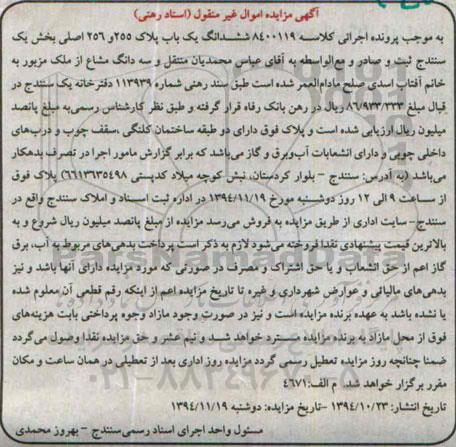 آگهی مزایده اموال غیر منقول (اسناد رهنی)
به موجب پرونده اجرائی کلاسه ۸۴۰۰۱۱۹ ششدانگ یک باب پلاک ۲۵۵و ۲۵۶ اصلی بخش یک
سنندج ثبت و صادر و مع‌الواسطه به آقای عباس محمدیان منتقل و سه دانگ مشاع از ملک مزبور به
خانم آفتاب اسدی صلح مادام‌العمر شده است طبق سند رهنی شماره ۱۱۳۹۳۹ دفترخانه یک سنندج در
قبال مبلغ ۸۶/۹۳۳/۳۳۳ ریال در رهن بانک رفاه قرار گرفته و طبق نظر کارشناس رسمی‌به مبلغ پانصد
میلیون ریال ارزیابی شده است و پلاک فوق دارای دو طبقه ساختمان کلنگی ،سقف چوب و درب‌های
داخلی چوبی و دارای انشعابات آب‌وبرق و گاز می‌باشد که برابر گزارش مامور اجرا در تصرف بدهکار
می‌باشد (به آدرس: سنندج - بلوار کردستان، نبش کوچه میلاد کدپستی ۶۶۱۳۶۳۵۴۹۸) پلاک فوق
از ساعت ۹ الی ۱۲ روز دوشنبه مورخ ۱۳۹۴/۱۱/۱۹ در اداره ثبت اسناد و املاک سنندج واقع در
سنندج- سایت اداری از طریق مزایده به فروش می‌رسد مزایده از مبلغ پانصد میلیون ریال شروع و به
بالاترین قیمت پیشنهادی نقدا فروخته می‌شود لازم به ذکر است پرداخت بدهی‌های مربوط به آب، برق
گاز اعم از حق انشعاب و یا حق اشتراک و مصرف در صورتی که مورد مزایده دارای آنها باشد و نیز
بدهی‌های مالیاتی و عوارض شهرداری و غیره تا تاریخ مزایده اعم از اینکه رقم قطعی آن معلوم شده
یا نشده باشد به عهده برنده مزایده است و نیز در صورت وجود مازاد وجوه پرداختی بابت هزینه‌های
فوق از محل مازاد به برنده مزایده مسترد خواهد شد و نیم عشر و حق مزایده نقدا وصول می‌گردد
ضمنا چنانچه روز مزایده تعطیل رسمی گردد مزایده روز اداری بعد از تعطیلی در همان ساعت و مکان
مقرر برگزار خواهد شد م الف:۴۶۷۱
تاریخ انتشار: ۱۳۹۴/۱۰/۲۳ -تاریخ مزایده: دوشنبه ۱۳۹۴/۱۱/۱۹
مسئول واحد اجرای اسناد رسمی‌سنندج - بهروز محمدی
ParsNamadData